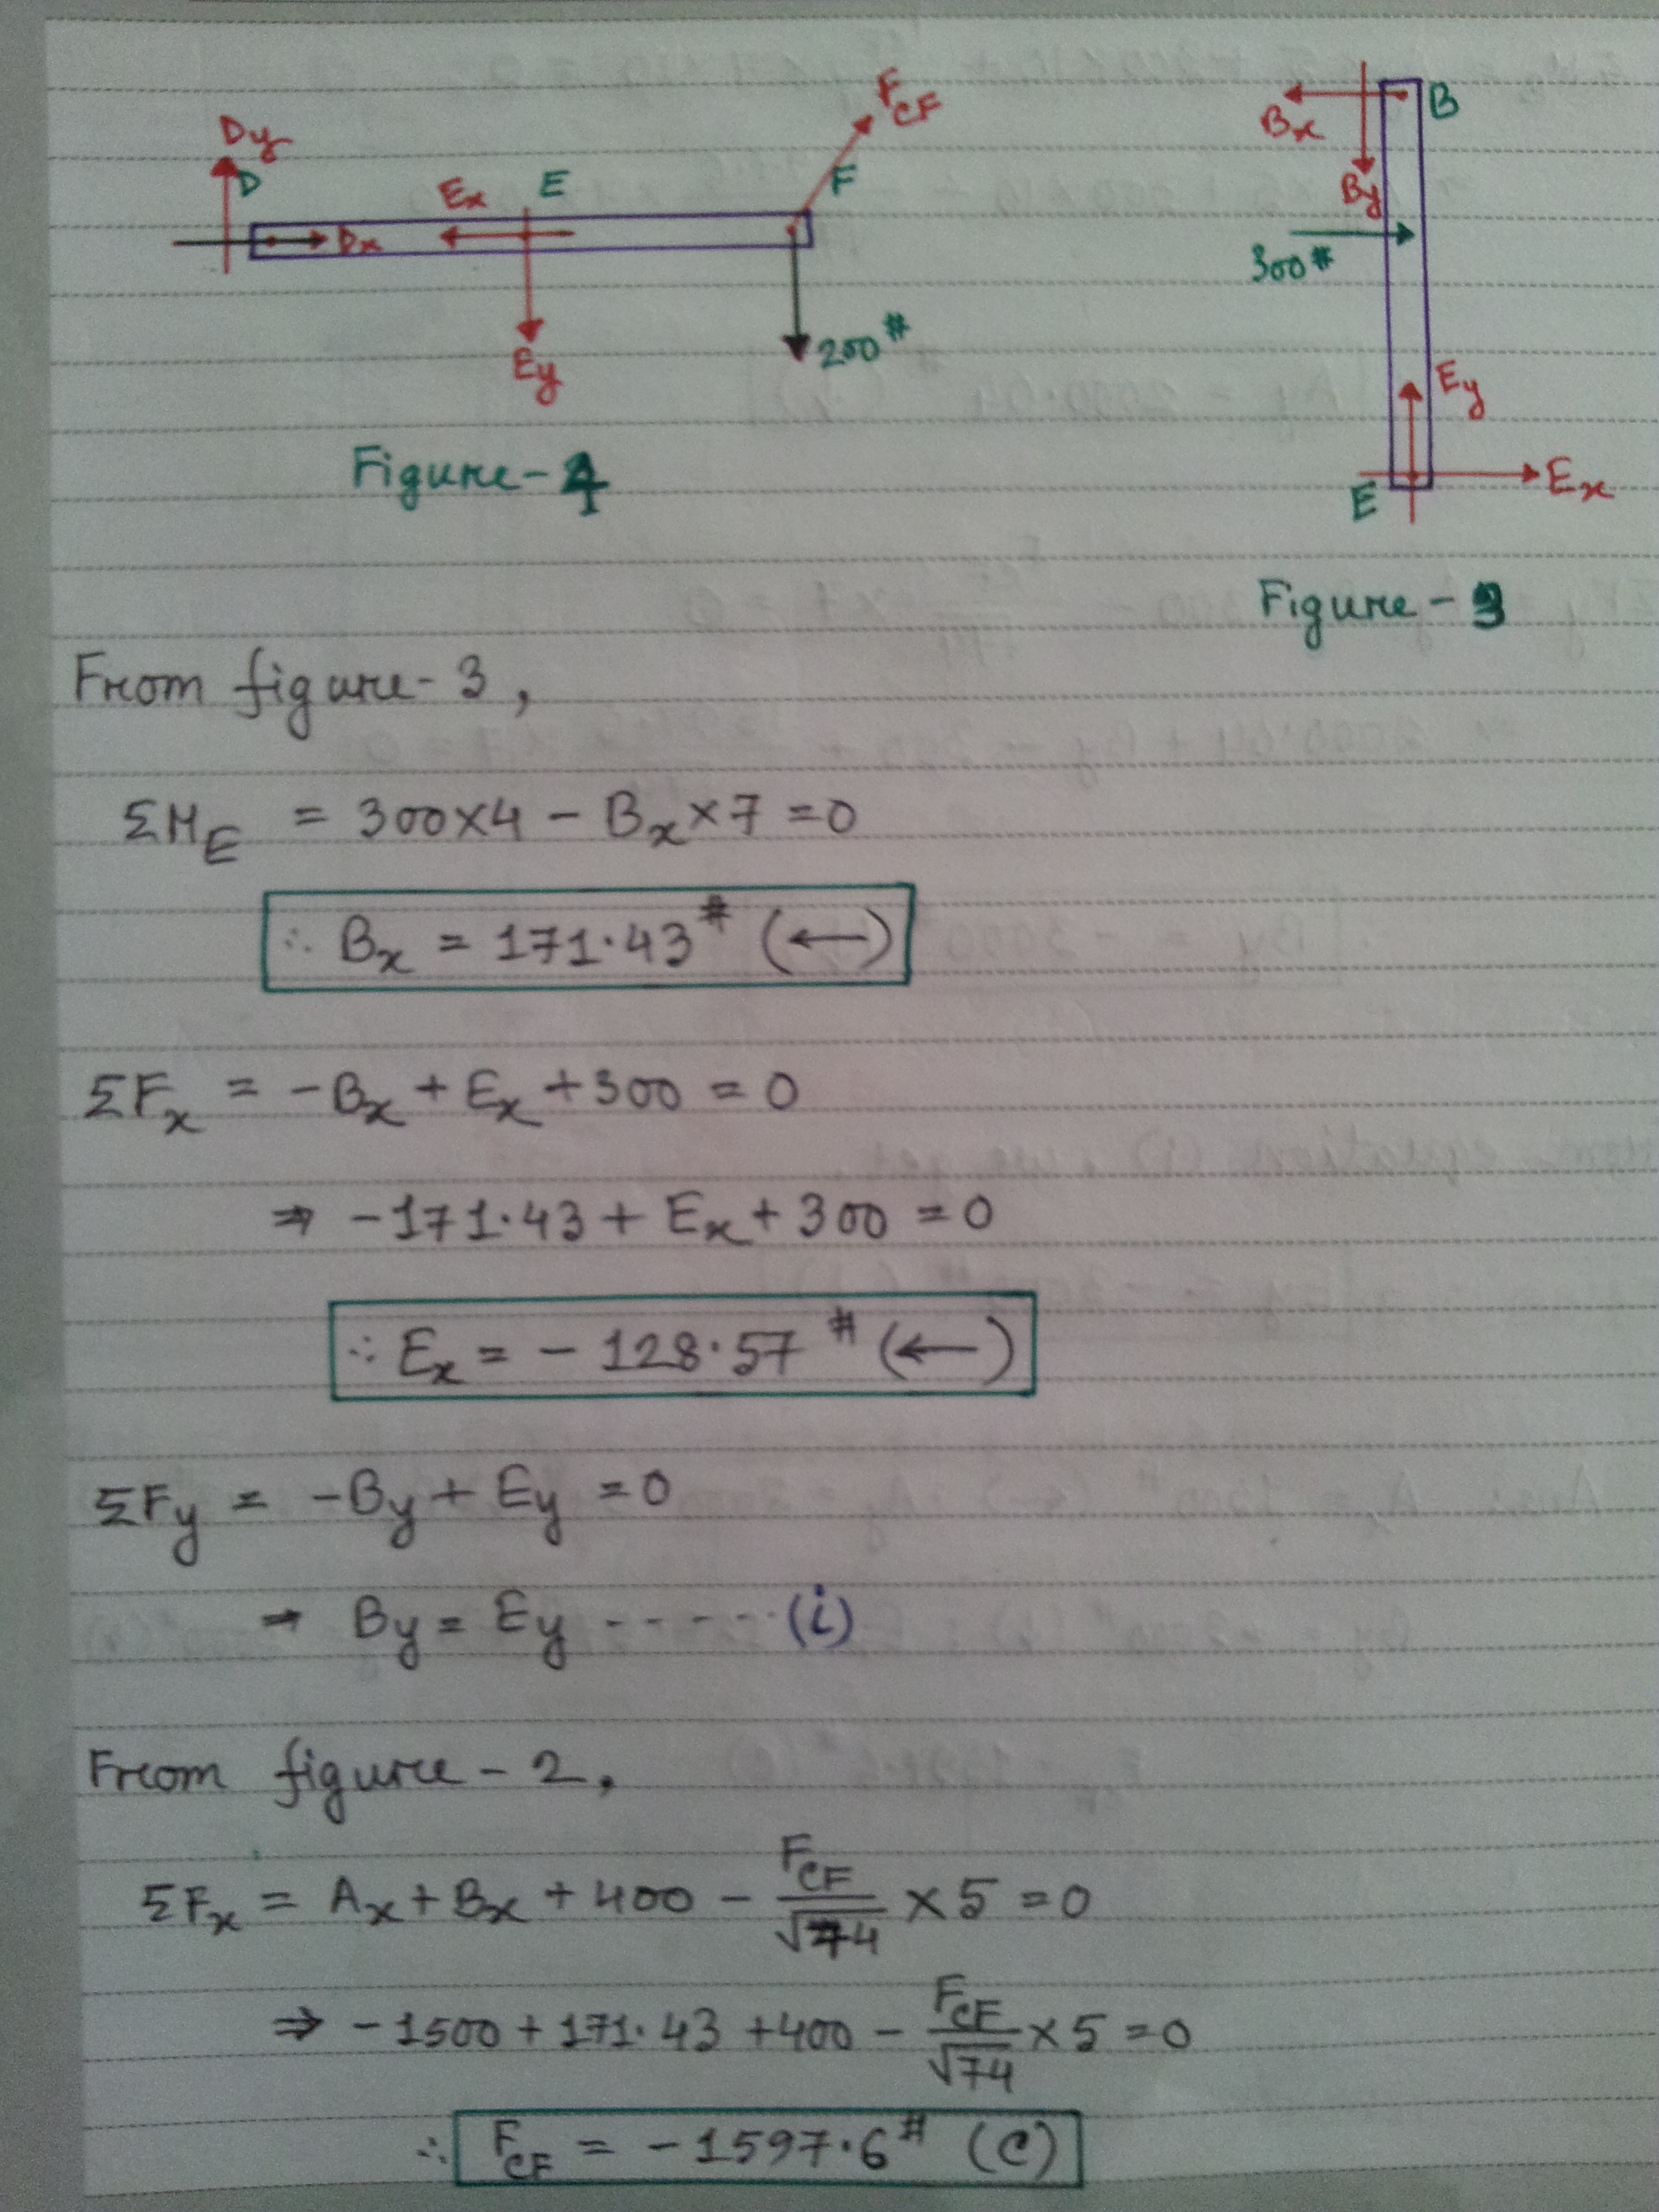 Dy
D
Dx
Ex
E
Ey
F
F_CF
200#
Figure-4
Bx
B
By
300#
Ey
E
Ex
Figure-3
From figure-3,
ΣM_E = 300×4 - Bx×7 = 0
∴ Bx = 171.43# (←)
ΣFx = -Bx + Ex + 300 = 0
⇒ -171.43 + Ex + 300 = 0
∴ Ex = - 128.57# (←)
ΣFy = -By + Ey = 0
⇒ By = Ey - - - - - (i)
From figure-2,
ΣFx = Ax + Bx + 400 - F_CF/√74 × 5 = 0
⇒ -1500 + 171.43 + 400 - F_CF/√74 × 5 = 0
∴ F_CF = -1597.6# (C)